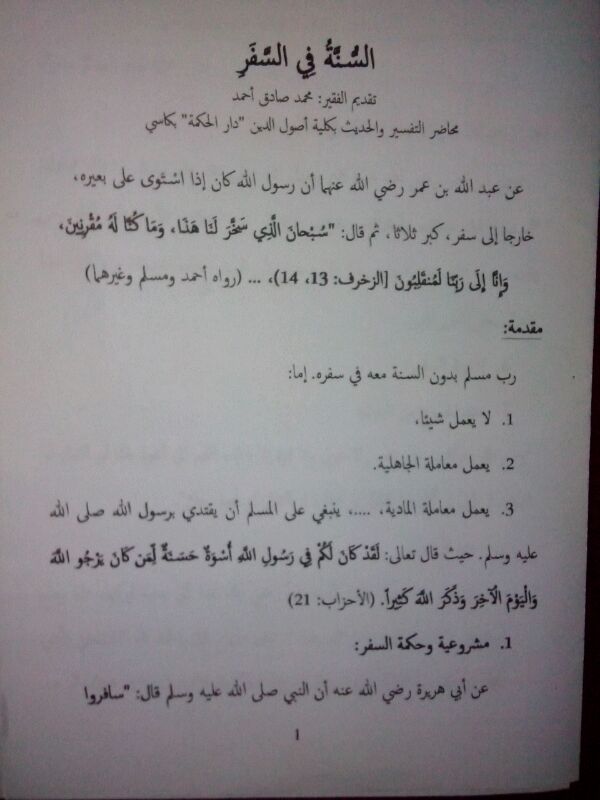 السُّنَّةُ فِي السَّفَرِ
تقديم الفقير: محمد صادق أحمد
محاضر التفسير والحديث بكلية أصول الدين "دار الحكمة" بكاسي
عن عبد الله بن عمر رضي الله عنهما أن رسول الله كان إذا اسْتَوى على بعيره،
خارجا إلى سفر، كبر ثلاثا، ثم قال: "سُبْحانَ الَّذِي سَخَّرَ لَنَا هَذَا، وَمَا كُنَّا لَهُ مُقْرِنِينَ،
وَإِنَّا إِلَى رَبِّنَا لَمُنقَلِبُونَ [الزخرف: 13، 14)، ... (رواه أحمد ومسلم وغيرهما)
مقدمة:
رب مسلم بدون السنة معه في سفره. إما:
1. لا يعمل شيئا،
2. يعمل معاملة الجاهلية.
3. يعمل معاملة المادية، ....، ينبغي على المسلم أن يقتدي برسول الله صلى الله
عليه وسلم. حيث قال تعالى: لَقَدْ كَانَ لَكُمْ فِي رَسُولِ اللَّهِ أُسْوَةٌ حَسَنَةٌ لِّمَن كَانَ يَرْجُو اللَّهَ
وَالْيَوْمَ الْآخِرَ وَذَكَرَ اللَّهَ كَثِيراً. (الأحزاب: 21)
1. مشروعية وحكمة السفر:
عن أبي هريرة رضي الله عنه أن النبي صلى الله عليه وسلم قال: "سافروا
1